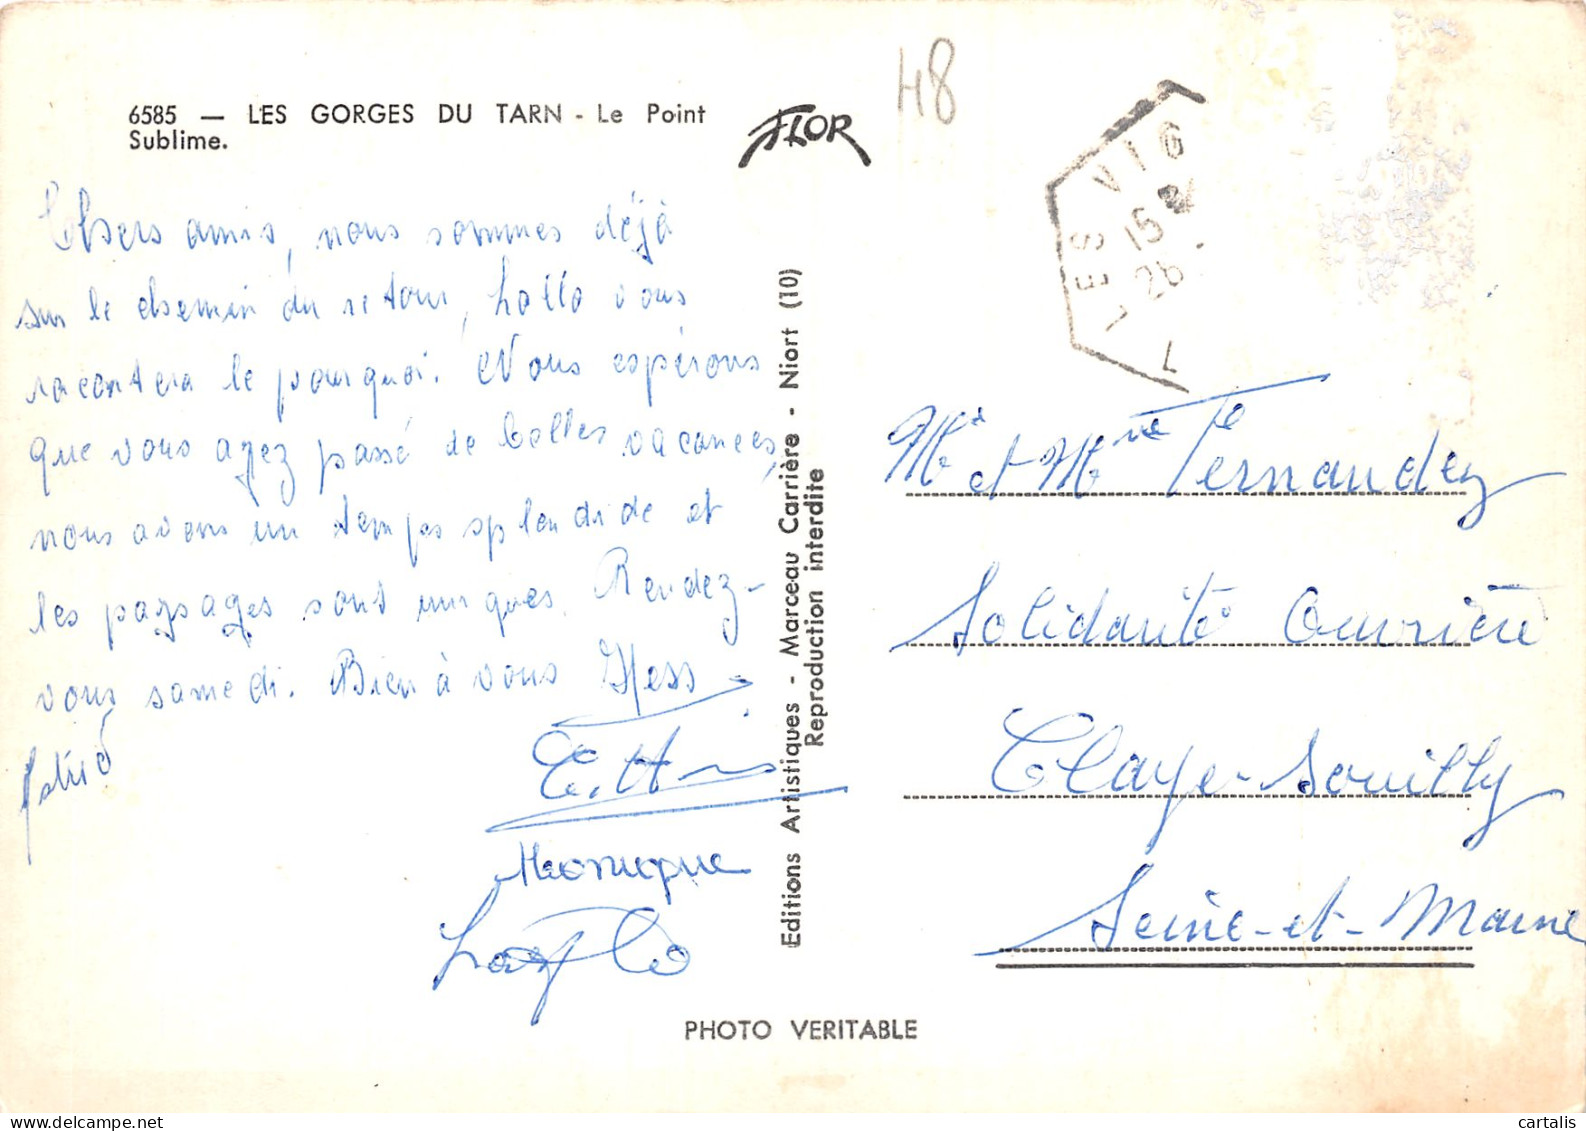 6585 — LES GORGES DU TARN - Le Point
Sublime.
FLOR
48
LES VIG
15
28
7
Chers amis, nous sommes déjà
sur le chemin du retour, Lollo vous
racontera le pourquoi. Nous espérons
que vous ayez passé de belles vacances,
nous avons un temps splendide et
les paysages sont uniques. Rendez-
vous samedi. Bien à vous Hess
Monique
Editions Artistiques - Marceau Carrière - Niort (10)
Reproduction interdite
Mr et Mme Fernandez
Solidarité Ouvrière
Claye-Souilly
Seine-et-Marne
PHOTO VERITABLE
delcampe.net
cartalis